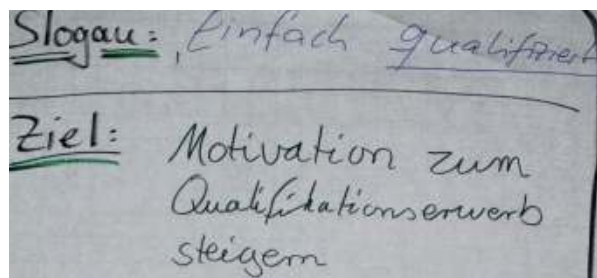 Slogan: Einfach qualifiziert
Ziel: Motivation zum
Qualifikationserwerb
steigern